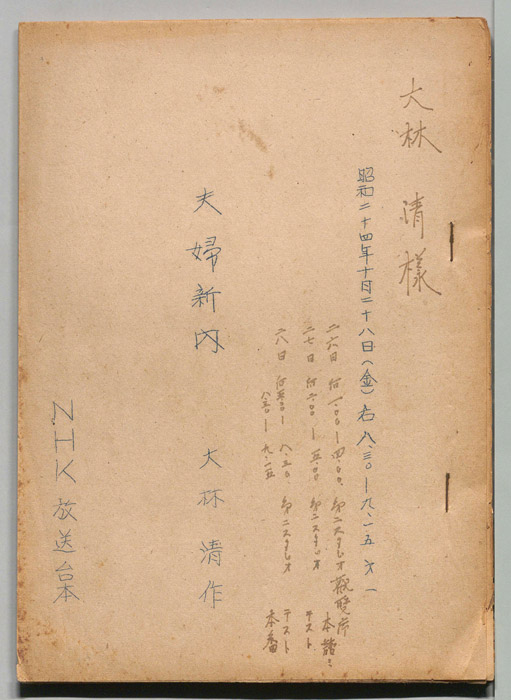 大林 清様
昭和二十四年十月二十八日(金) 后八.三〇—九.一五 オ一
二六日 后一.〇〇—四.〇〇 第二スタジオ 本読ミ
二七日 后二.〇〇—五.〇〇 第二スタジオ テスト
二八日 后五.〇〇—八.三〇 第二スタジオ テスト
八.三〇—九.一五 本番
夫婦新内
大林 清作
NHK放送台本